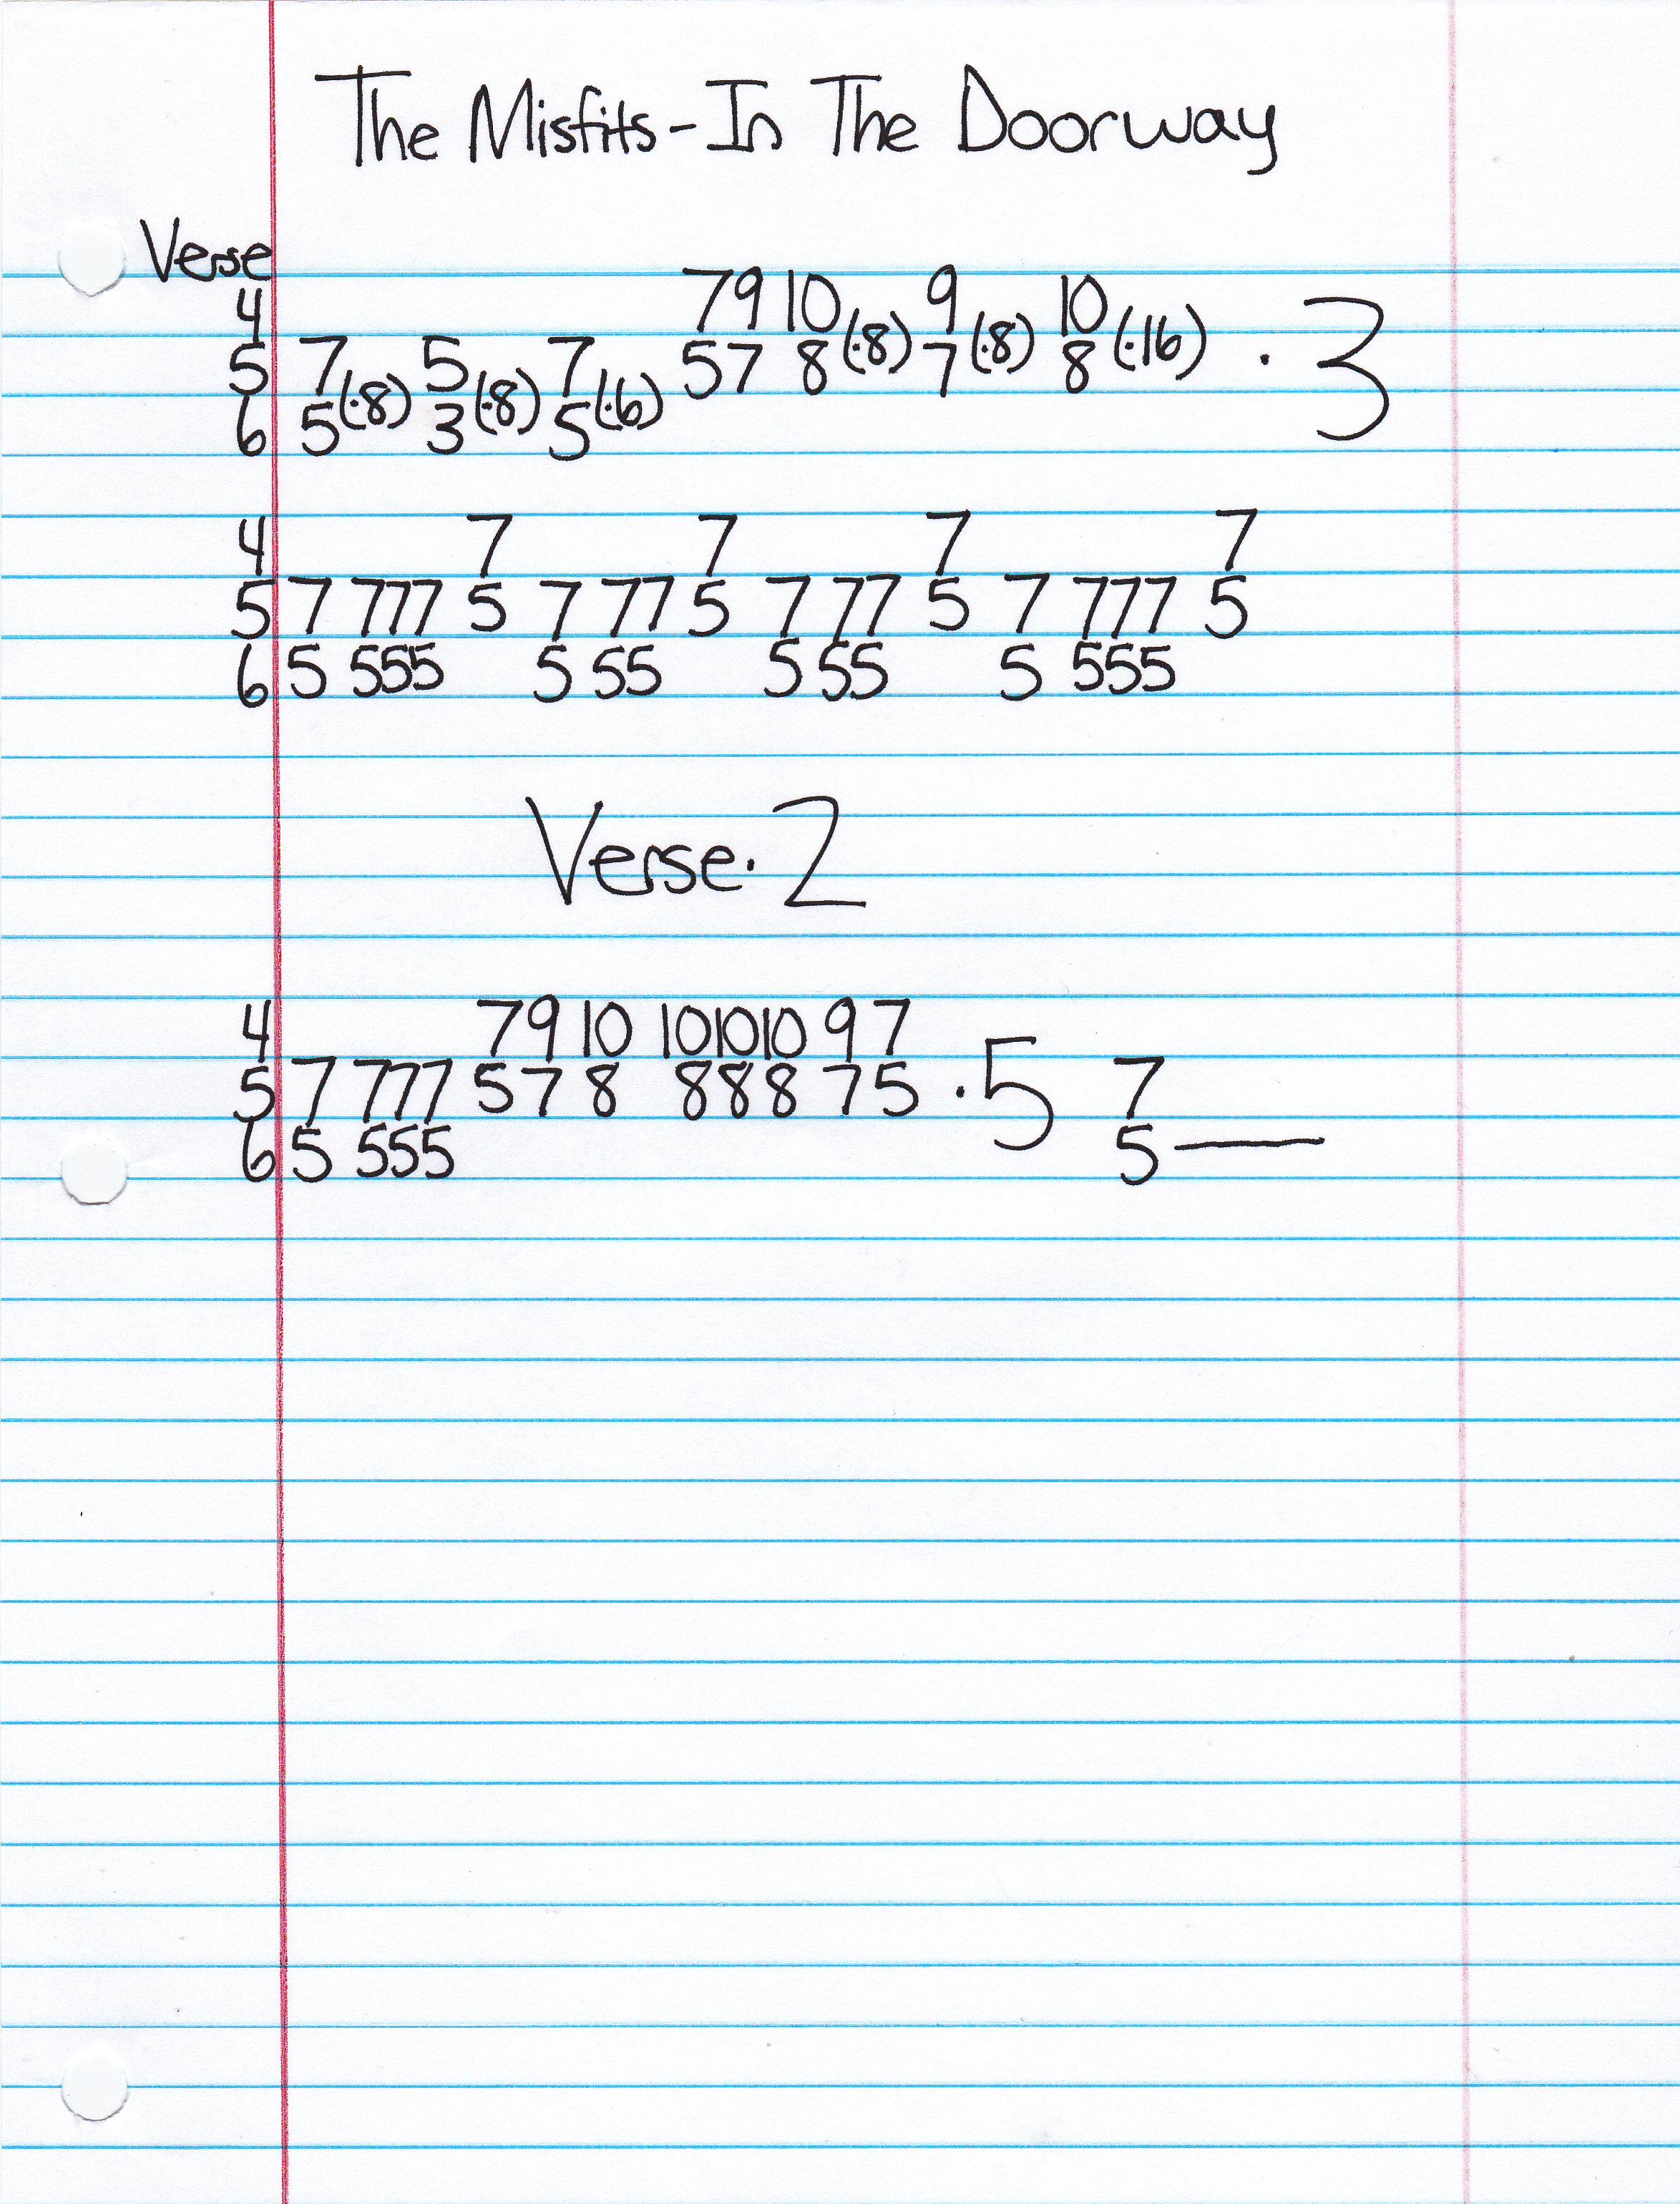 The Misfits - In The Doorway
Verse
4 79 10 9 10
5 7(·8) 5(·8) 7(·6) 57 8(·8) 7(·8) 8(·16) · 3
6 5 3 5
4 7 7 7 7
5 7 777 5 7 77 5 7 77 5 7 777 5
6 5 555 5 55 5 55 5 555
Verse · 2
4 79 10 101010 97
5 7 777 57 8 888 75 · 5 7
6 5 555 5 —